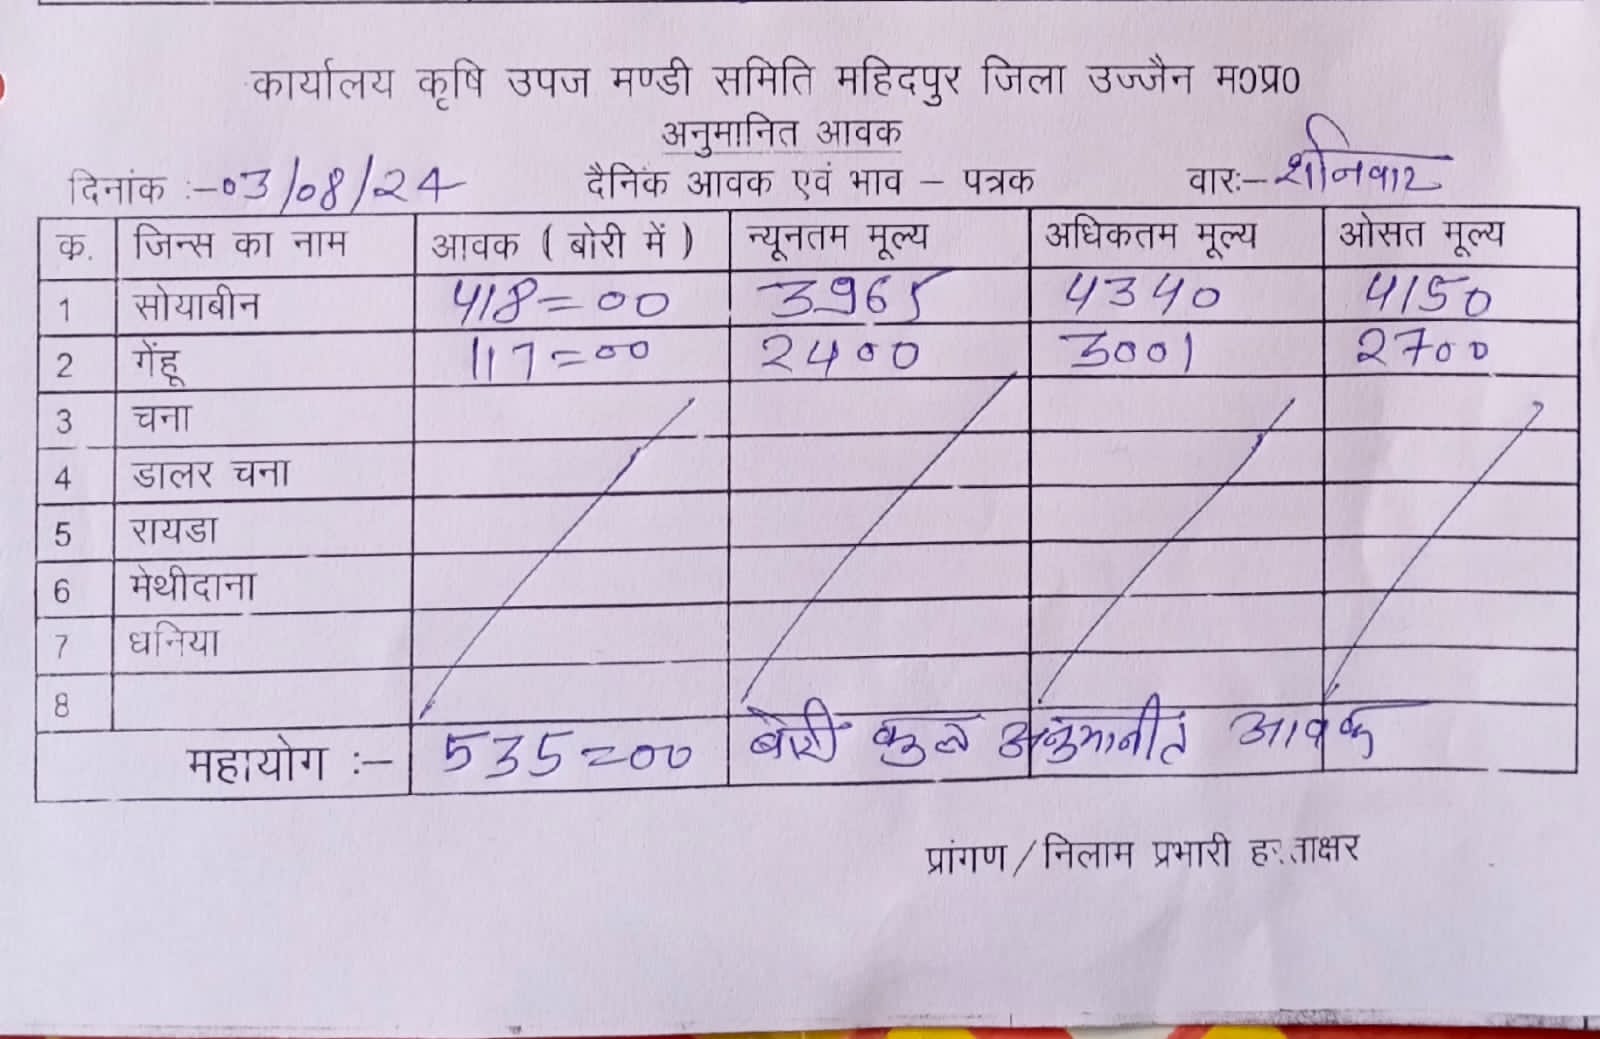 कार्यालय कृषि उपज मण्डी समिति महिदपुर जिला उज्जैन म०प्र०
अनुमानित आवक
दिनांक :- 03/08/24 दैनिक आवक एवं भाव – पत्रक वारः- शनिवार
क. जिन्स का नाम आवक ( बोरी में ) न्यूनतम मूल्य अधिकतम मूल्य ओसत मूल्य
1 सोयाबीन 418=00 3965 4340 4150
2 गेंहू 117=00 2400 3001 2700
3 चना
4 डालर चना
5 रायडा
6 मेथीदाना
7 धनिया
8
महायोग :– 535=00 बोरी कुल अनुमानीत आवक
प्रांगण / निलाम प्रभारी हःताक्षर